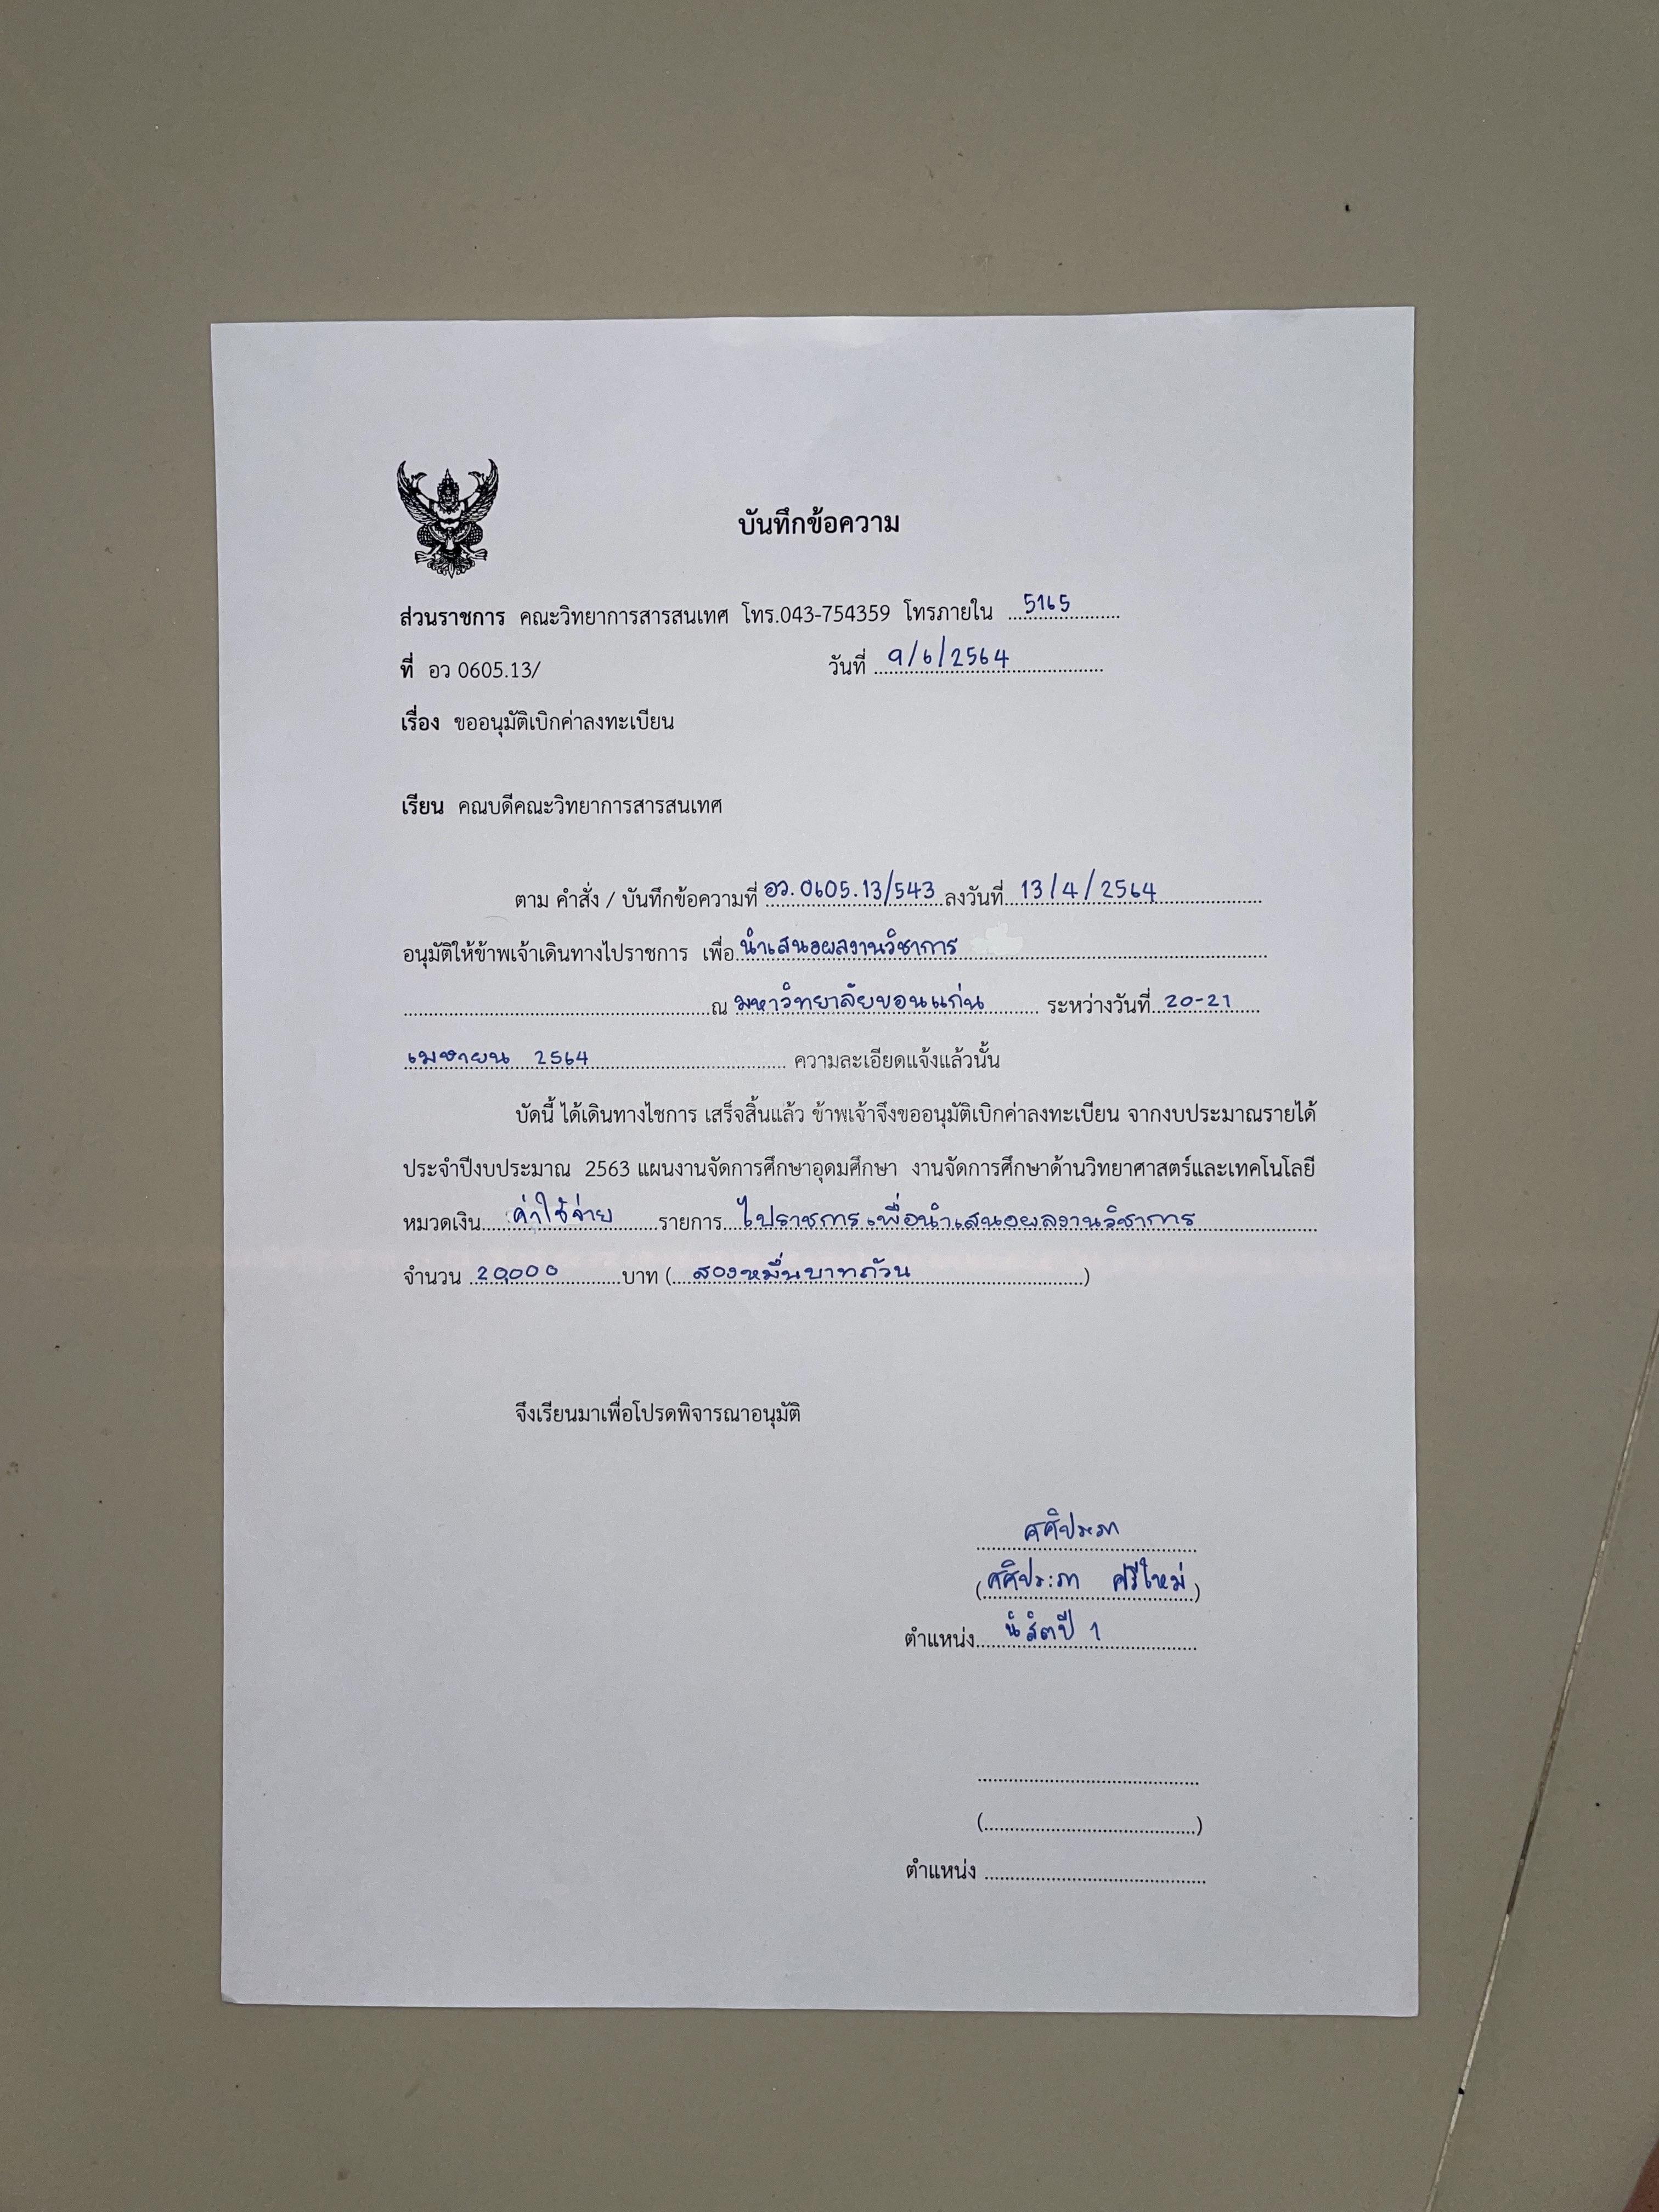 บันทึกข้อความ
ส่วนราชการ คณะวิทยาการสารสนเทศ โทร.043-754359 โทรภายใน 5165
ที่ อว 0605.13/ วันที่ 9/6/2564
เรื่อง ขออนุมัติเบิกค่าลงทะเบียน
เรียน คณบดีคณะวิทยาการสารสนเทศ
ตาม คำสั่ง / บันทึกข้อความที่ อว.0605.13/543 ลงวันที่ 13/4/2564
อนุมัติให้ข้าพเจ้าเดินทางไปราชการ เพื่อ นำเสนอผลงานวิชาการ
ณ มหาวิทยาลัยขอนแก่น ระหว่างวันที่ 20-21
เมษายน 2564 ความละเอียดแจ้งแล้วนั้น
บัดนี้ ได้เดินทางไชการ เสร็จสิ้นแล้ว ข้าพเจ้าจึงขออนุมัติเบิกค่าลงทะเบียน จากงบประมาณรายได้
ประจำปีงบประมาณ 2563 แผนงานจัดการศึกษาอุดมศึกษา งานจัดการศึกษาด้านวิทยาศาสตร์และเทคโนโลยี
หมวดเงิน ค่าใช้จ่าย รายการ ไปราชการเพื่อนำเสนอผลงานวิชาการ
จำนวน 20,000 บาท (สองหมื่นบาทถ้วน)
จึงเรียนมาเพื่อโปรดพิจารณาอนุมัติ
ศศิประภา
(ศศิประภา ศรีใหม่)
ตำแหน่ง นิสิตปี 1
(    )
ตำแหน่ง